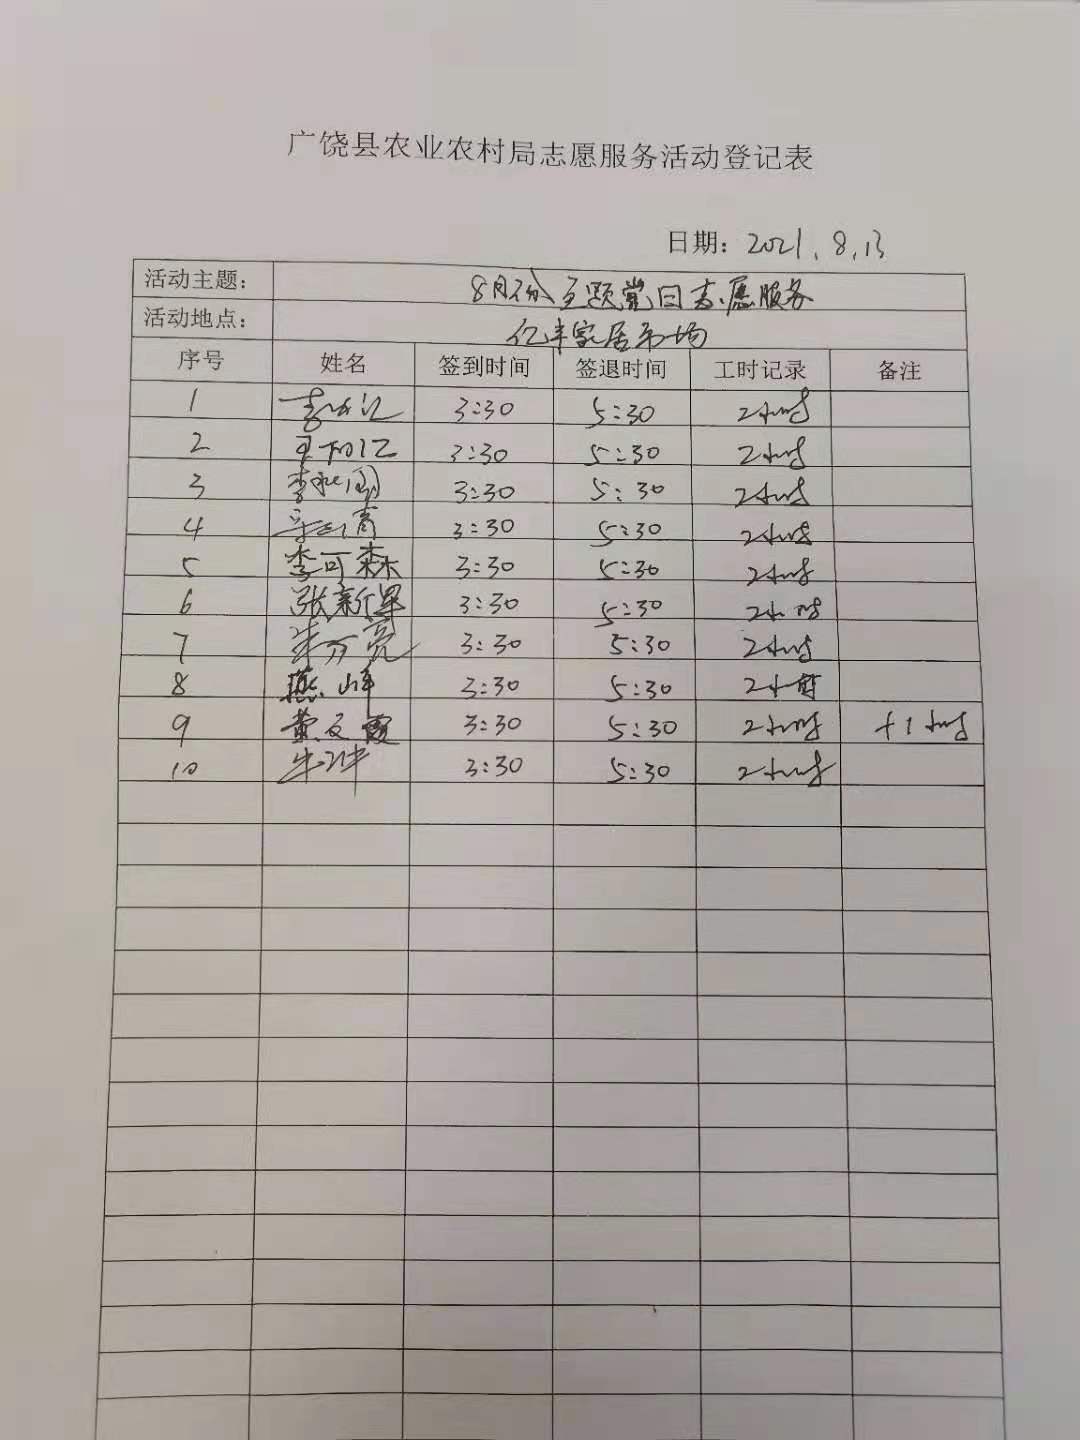 广饶县农业农村局志愿服务活动登记表
日期：2021.8.13
活动主题： 8月份主题党日志愿服务
活动地点： 亿丰家居市场
序号 姓名 签到时间 签退时间 工时记录 备注
1 3:30 5:30 2小时
2 3:30 5:30 2小时
3 3:30 5:30 2小时
4 3:30 5:30 2小时
5 李可森 3:30 5:30 2小时
6 张新军 3:30 5:30 2小时
7 3:30 5:30 2小时
8 燕峰 3:30 5:30 2小时
9 黄文霞 3:30 5:30 2小时 +1小时
10 3:30 5:30 2小时